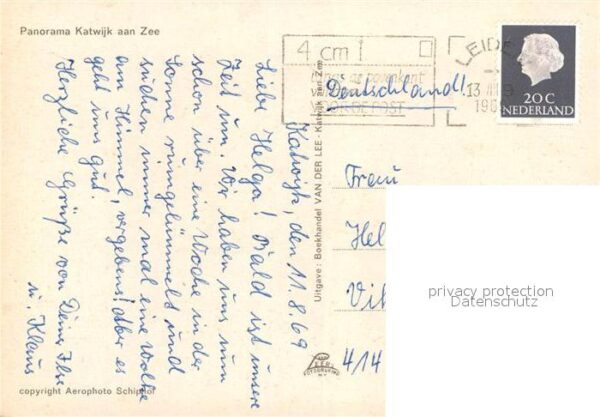 Panorama Katwijk aan Zee
4 cm
VOOR DE POST
Deutschland!
LEIDE
13
196
20 C
NEDERLAND
Katwijk, den 11.8.69
Liebe Helga! Bald ist unsere
Zeit um. Wir haben uns nun
schon über eine Woche in der
Sonne rumgelümmelt und
suchen immer mal eine Wolke
am Himmel, vergebens! Aber es
geht uns gut.
Herzliche Grüße von Deiner Ilse
u. Klaus
Uitgave: Boekhandel VAN DER LEE - Katwijk aan Zee
Frau
Hel
414
privacy protection
Datenschutz
copyright Aerophoto Schiphol